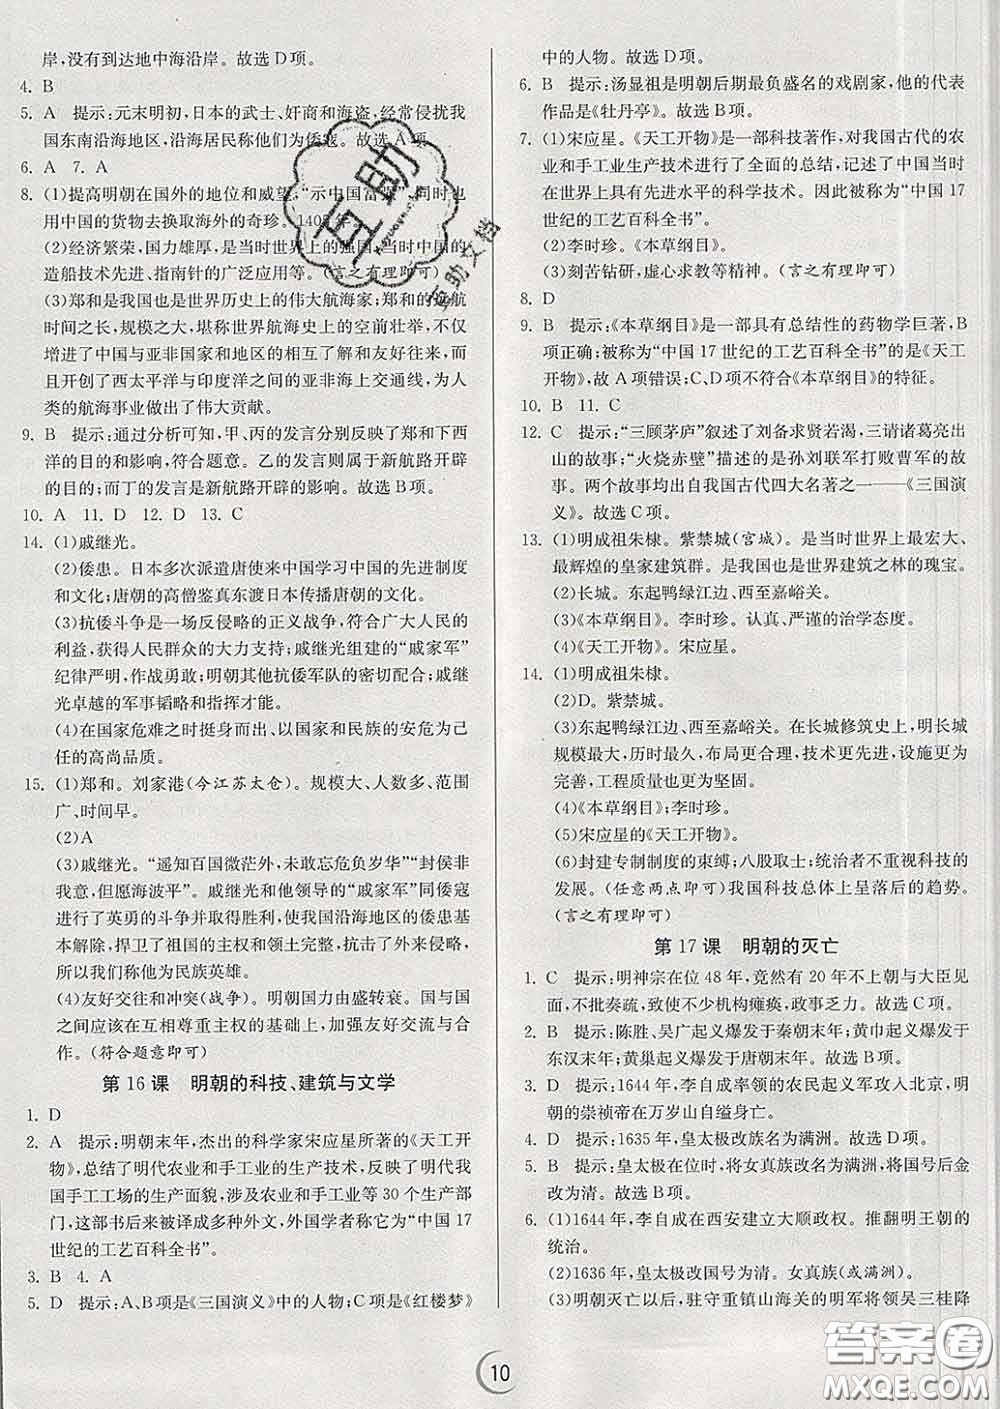 岸,没有到达地中海沿岸。故选D项。
4. B
5. A 提示:元末明初,日本的武士、奸商和海盗,经常侵扰我
国东南沿海地区,沿海居民称他们为倭寇。故选A项。
6. A 7. A
8. (1)提高明朝在国外的地位和威望,“示中国富强”,同时也
用中国的货物去换取海外的奇珍。1405年。
(2)经济繁荣,国力雄厚,是当时世界上的强国,当时中国的
造船技术先进、指南针的广泛应用等。(言之有理即可)
(3)郑和是我国也是世界历史上的伟大航海家;郑和的远航
时间之长,规模之大,堪称世界航海史上的空前壮举,不仅
增进了中国与亚非国家和地区的相互了解和友好往来,而
且开创了西太平洋与印度洋之间的亚非海上交通线,为人
类的航海事业做出了伟大贡献。
9. B 提示:通过分析可知,甲、丙的发言分别反映了郑和下西
洋的目的和影响,符合题意。乙的发言则属于新航路开辟
的目的;而丁的发言是新航路开辟的影响。故选B项。
10. A 11. D 12. D 13. C
14. (1)戚继光。
(2)倭患。日本多次派遣唐使来中国学习中国的先进制度
和文化;唐朝的高僧鉴真东渡日本传播唐朝的文化。
(3)抗倭斗争是一场反侵略的正义战争,符合广大人民的
利益,获得人民群众的大力支持;戚继光组建的“戚家军”
纪律严明,作战勇敢;明朝其他抗倭军队的密切配合;戚继
光卓越的军事韬略和指挥才能。
(4)在国家危难之时挺身而出、以国家和民族的安危为己
任的高尚品质。
15. (1)郑和。刘家港(今江苏太仓)。规模大、人数多、范围
广、时间早。
(2)A
(3)戚继光。“遥知百国微茫外,未敢忘危负岁华”“封侯非
我意,但愿海波平”。戚继光和他领导的“戚家军”同倭寇
进行了英勇的斗争并取得胜利,使我国沿海地区的倭患基
本解除,捍卫了祖国的主权和领土完整,符合人民的利益,
所以我们称他为民族英雄。
(4)友好交往和冲突(战争)。明朝国力由盛转衰。国与国
之间应该在互相尊重主权的基础上,加强友好交流与合
作。(符合题意即可)
第16课 明朝的科技、建筑与文学
1. D
2. A 提示:明朝末年,杰出的科学家宋应星所著的《天工开
物》,总结了明代农业和手工业的生产技术,反映了明代我
国手工工场的生产面貌,涉及农业和手工业等30个生产部
门,这部书后来被译成多种外文,外国学者称它为“中国17
世纪的工艺百科全书”。
3. B 4. A
5. D 提示:A、B项是《三国演义》中的人物;C项是《红楼梦》
中的人物。故选D项。
6. B 提示:汤显祖是明朝后期最负盛名的戏剧家,他的代表
作品是《牡丹亭》。故选B项。
7. (1)宋应星。《天工开物》是一部科技著作,对我国古代的农
业和手工业生产技术进行了全面的总结,记述了中国当时
在世界上具有先进水平的科学技术。因此被称为“中国17
世纪的工艺百科全书”。
(2)李时珍。《本草纲目》。
(3)刻苦钻研,虚心求教等精神。(言之有理即可)
8. D
9. B 提示:《本草纲目》是一部具有总结性的药物学巨著,B
项正确;被称为“中国17世纪的工艺百科全书”的是《天工
开物》,故A项错误;C、D项不符合《本草纲目》的特征。
10. B 11. C
12. C 提示:“三顾茅庐”叙述了刘备求贤若渴,三请诸葛亮出
山的故事;“火烧赤壁”描述的是孙刘联军打败曹军的故
事。两个故事均出自我国古代四大名著之一——《三国演
义》。故选C项。
13. (1)明成祖朱棣。紫禁城(宫城)。是当时世界上最宏大、
最辉煌的皇家建筑群。我国也是世界建筑之林的瑰宝。
(2)长城。东起鸭绿江边、西至嘉峪关。
(3)《本草纲目》。李时珍。认真、严谨的治学态度。
(4)《天工开物》。宋应星。
14. (1)明成祖朱棣。
(2)D。紫禁城。
(3)东起鸭绿江边、西至嘉峪关。在长城修筑史上,明长城
规模最大,历时最久,布局更合理,技术更先进,设施更为
完善,工程质量也更为坚固。
(4)《本草纲目》;李时珍。
(5)宋应星的《天工开物》。
(6)封建专制制度的束缚;八股取士;统治者不重视科技的
发展。(任意两点即可)我国科技总体上呈落后的趋势。
(言之有理即可)
第17课 明朝的灭亡
1. C 提示:明神宗在位48年,竟然有20年不上朝与大臣见
面,不批奏疏,致使不少机构瘫痪,政事乏力。故选C项。
2. B 提示:陈胜、吴广起义爆发于秦朝末年;黄巾起义爆发于
东汉末年;黄巢起义爆发于唐朝末年。故选B项。
3. D 提示:1644年,李自成率领的农民起义军攻入北京,明
朝的崇祯帝在万岁山自缢身亡。
4. D 提示:1635年,皇太极改族名为满洲。故选D项。
5. B 提示:皇太极在位时,将女真族改名为满洲,将国号后金
改为清。故选B项。
6. (1)1644年,李自成在西安建立大顺政权。推翻明王朝的
统治。
(2)1636年,皇太极改国号为清。女真族(或满洲)。
(3)明朝灭亡以后,驻守重镇山海关的明军将领吴三桂降
10
互助
互助文档
答案圈
MXQE.COM